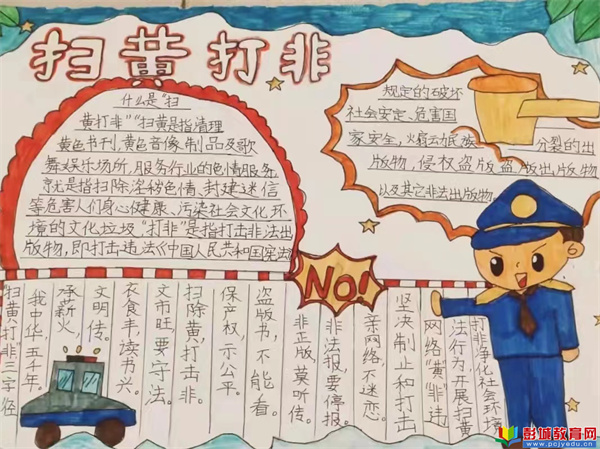 扫黄打非
什么是“扫
黄打非”“扫黄是指清理
黄色书刊,黄色音像制品及歌
舞娱乐场所,服务行业的色情服务,
就是指扫除淫秽色情、封建迷信
等危害人们身心健康、污染社会文化环
境的文化垃圾“打非”是指打击非法出
版物,即打击违法《中国人民共和国宪法》
规定的破坏
社会安定、危害国
家安全,煽动民族
分裂的出
版物,侵权盗版出版物,
以及其它非法出版物。
NO!
扫黄打非三字经
我中华,五千年,
承薪火,
文明传。
衣食丰,读书兴。
文市旺,要守法。
扫除黄,打击非。
保产权,示公平。
盗版书,不能看。
非正版,莫听传。
非法报,要停报。
亲网络,不迷恋。
坚决制止和打击
网络“黄”“非”违
法行为,开展扫黄
打非净化社会环境
彭城教育网
www.pcjyedu.com